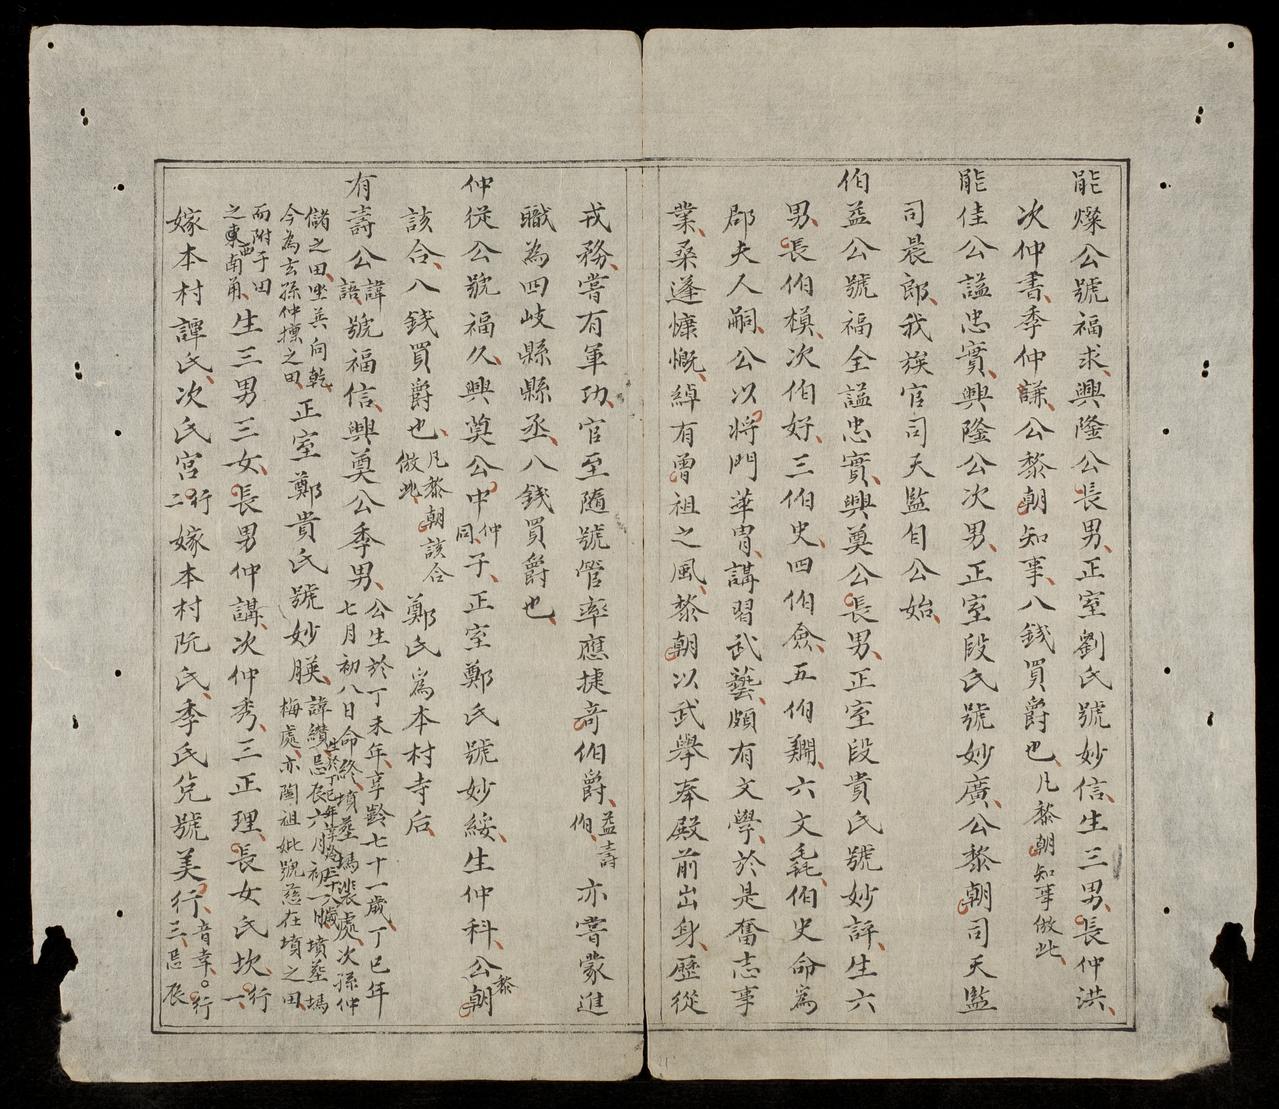 能燦公號福求興隆公長男正室劉氏號妙信生三男長仲洪
次仲書季仲謙公黎朝知事八錢買爵也凡黎朝知事倣此
能佳公謚忠實興隆公次男正室段氏號妙廣公黎朝司天監
司晨郎我族官司天監自公始
伯益公號福全謚忠實興奠公長男正室段貴氏號妙評生六
男長伯模次伯好三伯史四伯僉五伯翺六文毳伯史命為
郡夫人嗣公以將門華冑講習武藝頗有文學於是奮志事
業桑蓬慷慨綽有曾祖之風黎朝以武學奉殿前出身歷從
戎務嘗有軍功官至隨號管率應捷奇伯爵益壽伯亦嘗蒙進
職為四岐縣縣丞八錢買爵也
仲從公號福久興奠公中仲同子正室鄭氏號妙綏生仲科公黎朝
該合八錢買爵也凡黎朝該合倣此鄭氏為本村寺后
有壽公諱語號福信興奠公季男公生於丁未年享齡七十一歲丁巳年
七月初八日命終墳墓塢裴處次孫仲
儲之田坐巽向乾
今為玄孫仲檁之田正室鄭貴氏號妙䏃諱纘忌辰六月初墳墓塢
梅處亦陶祖妣號慈在墳之田
而附于田
之東西南角生三男三女長男仲講次仲秀三正理長女氏坎行一
嫁本村譚氏次氏宮行二嫁本村阮氏季氏兌號美行音幸行三忌辰